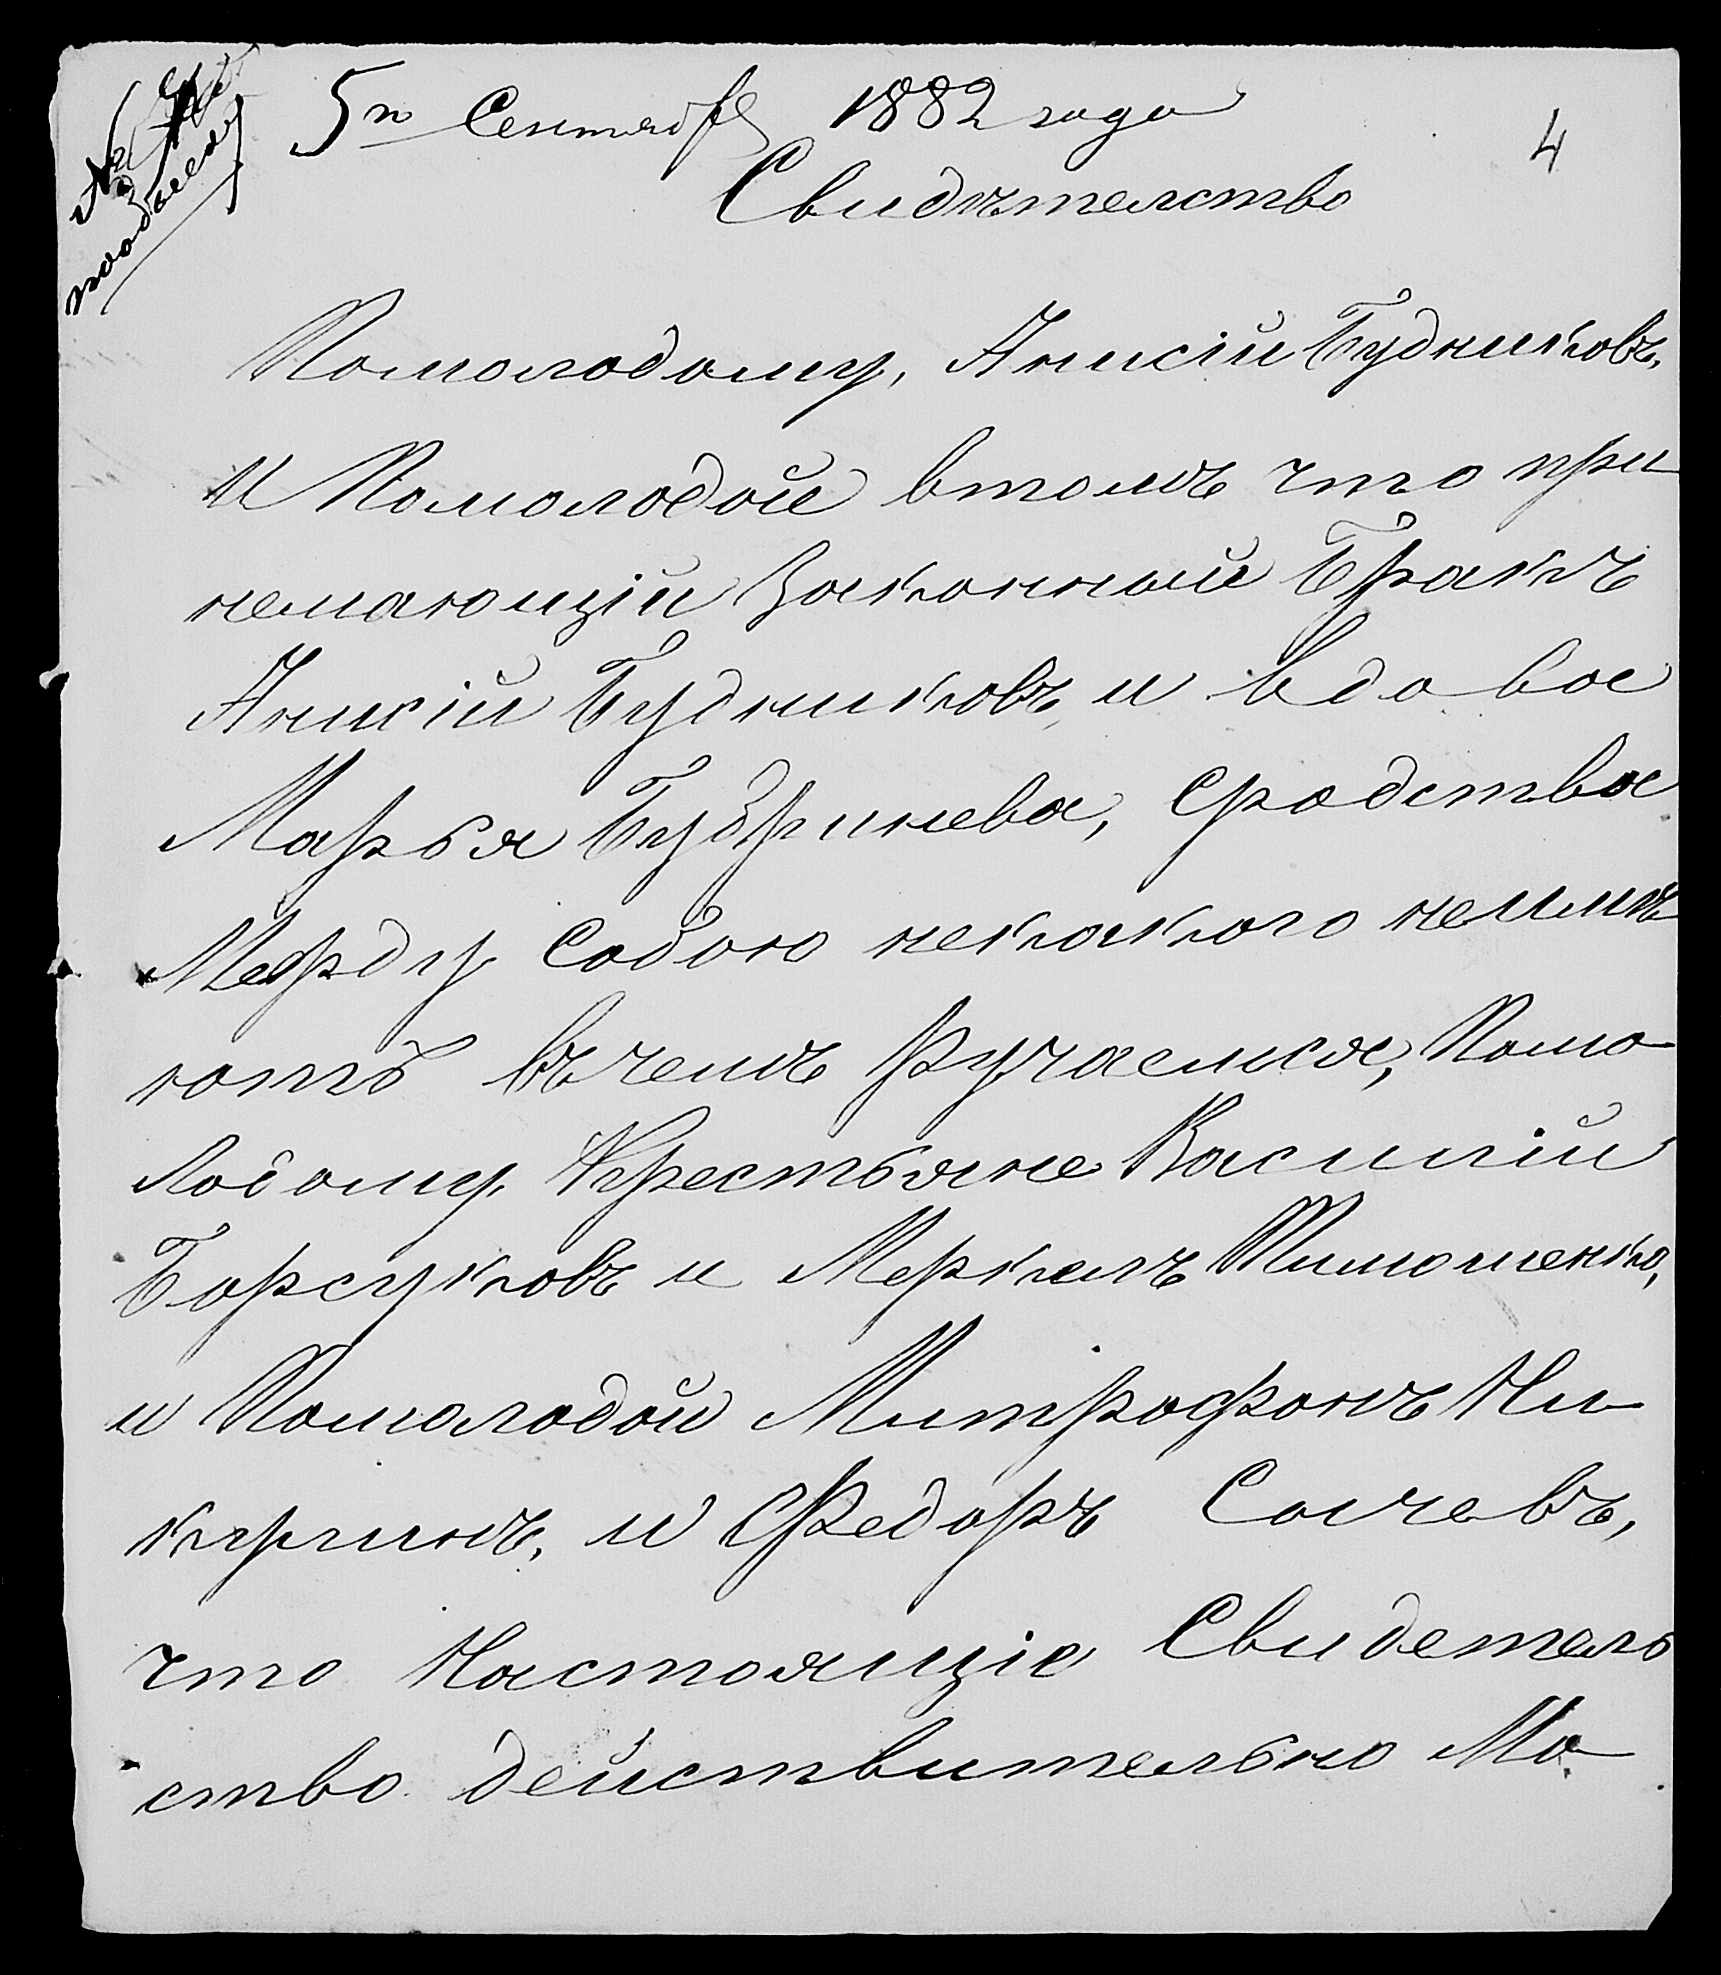 5го Сентября 1882 года
4
Свидѣтелство
Помолодому, Анисій Будниковъ,
И Помолодой втомъ что при
немающій Законный Бракъ
Анисій Будниковъ и вдова
Марья Бубринева, Сродства
Мержду Собою некакого неимѣ
ютъ въчемъ ручаемся, Помо
лодому, Крестьяне Василій
Борсуковъ и Меркелъ Тимошенко,
и Помолодой Митрофанъ Чи
кринъ, и Федоръ Сычевъ,
что Настоящіе Свидетель
ство действительно Мо